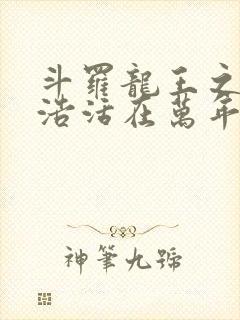 斗羅龍王之
浩活在萬年
神筆九號